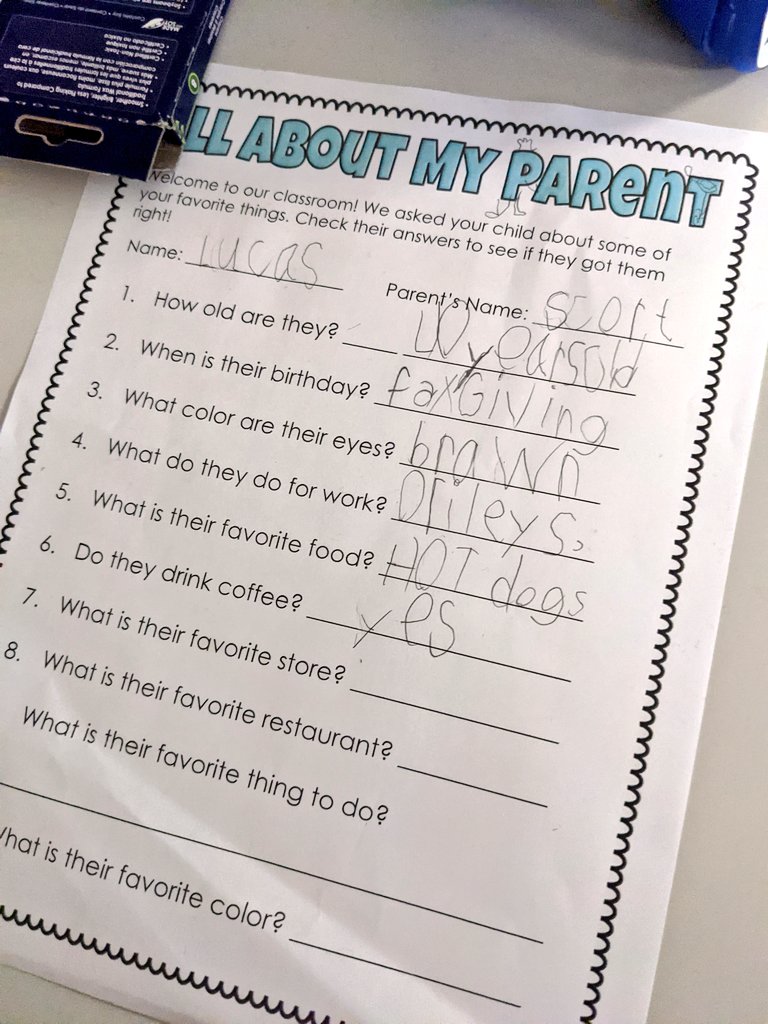 MADE TO LAST
• Smoother, Brighter, less flaking Compared to
traditional Wax Formula
• Certified Non Toxic
• Certifié non toxique
• Certificado no tóxico
LL ABOUT MY PARENT
Welcome to our classroom! We asked your child about some of
your favorite things. Check their answers to see if they got them
right!
Name: lucas
Parent's Name: scott
1. How old are they? 40 yearsold
2. When is their birthday? faxGiving
3. What color are their eyes? brawn
4. What do they do for work? Orileys.
5. What is their favorite food? HOT dogs
6. Do they drink coffee? yes
7. What is their favorite store?
8. What is their favorite restaurant?
What is their favorite thing to do?
What is their favorite color?